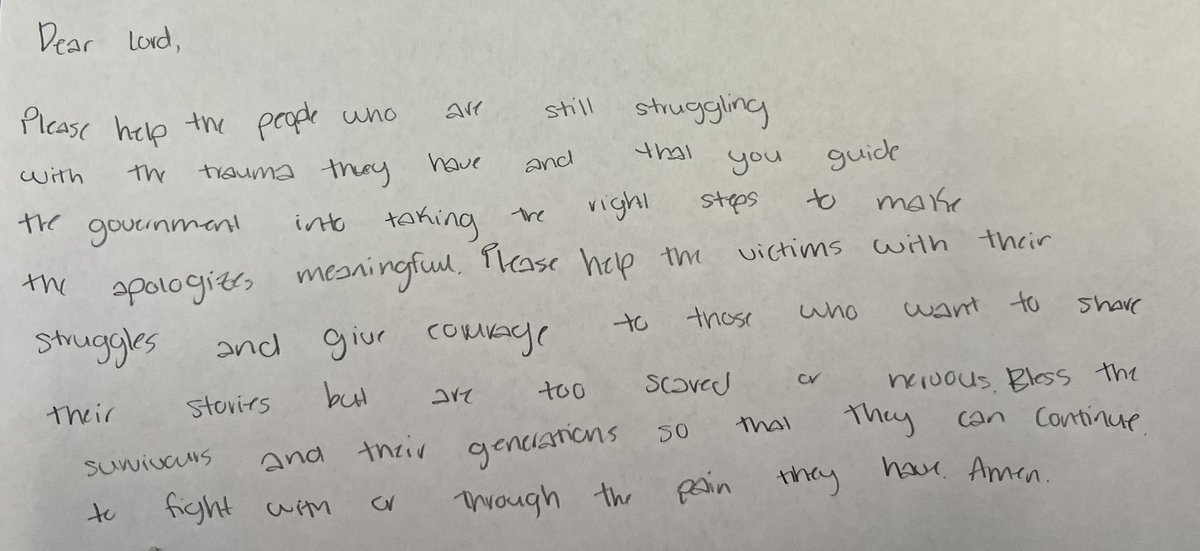 Dear Lord,
Please help the people who are still struggling
with the trauma they have and that you guide
the government into taking the right steps to make
the apologizes meaningful. Please help the victims with their
struggles and give courage to those who want to share
their stories but are too scared or nervous. Bless the
survivours and their generations so that they can continue.
to fight with or through the pain they have. Amen.